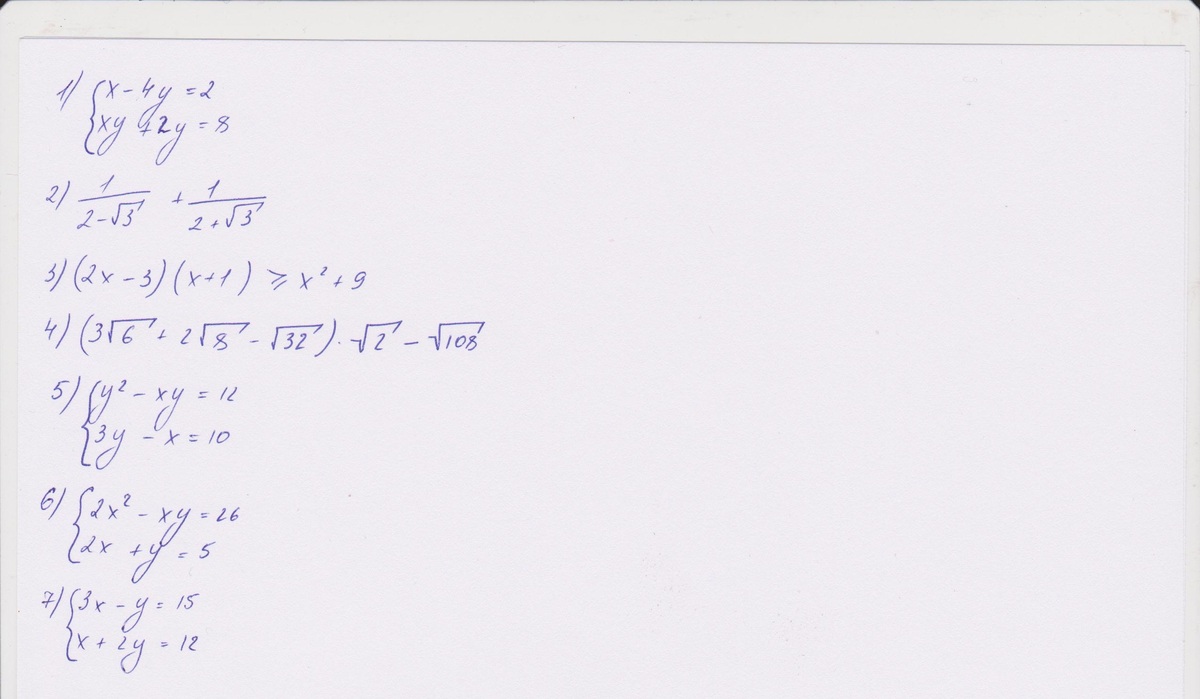 1) { x - 4y = 2
xy + 2y = 8
2) 1/(2-√3) + 1/(2+√3)
3) (2x - 3)(x+1) ⩾ x² + 9
4) (3√6 + 2√8 - √32) · √2 - √108
5) { y² - xy = 12
3y - x = 10
6) { 2x² - xy = 26
2x + y = 5
7) { 3x - y = 15
x + 2y = 12